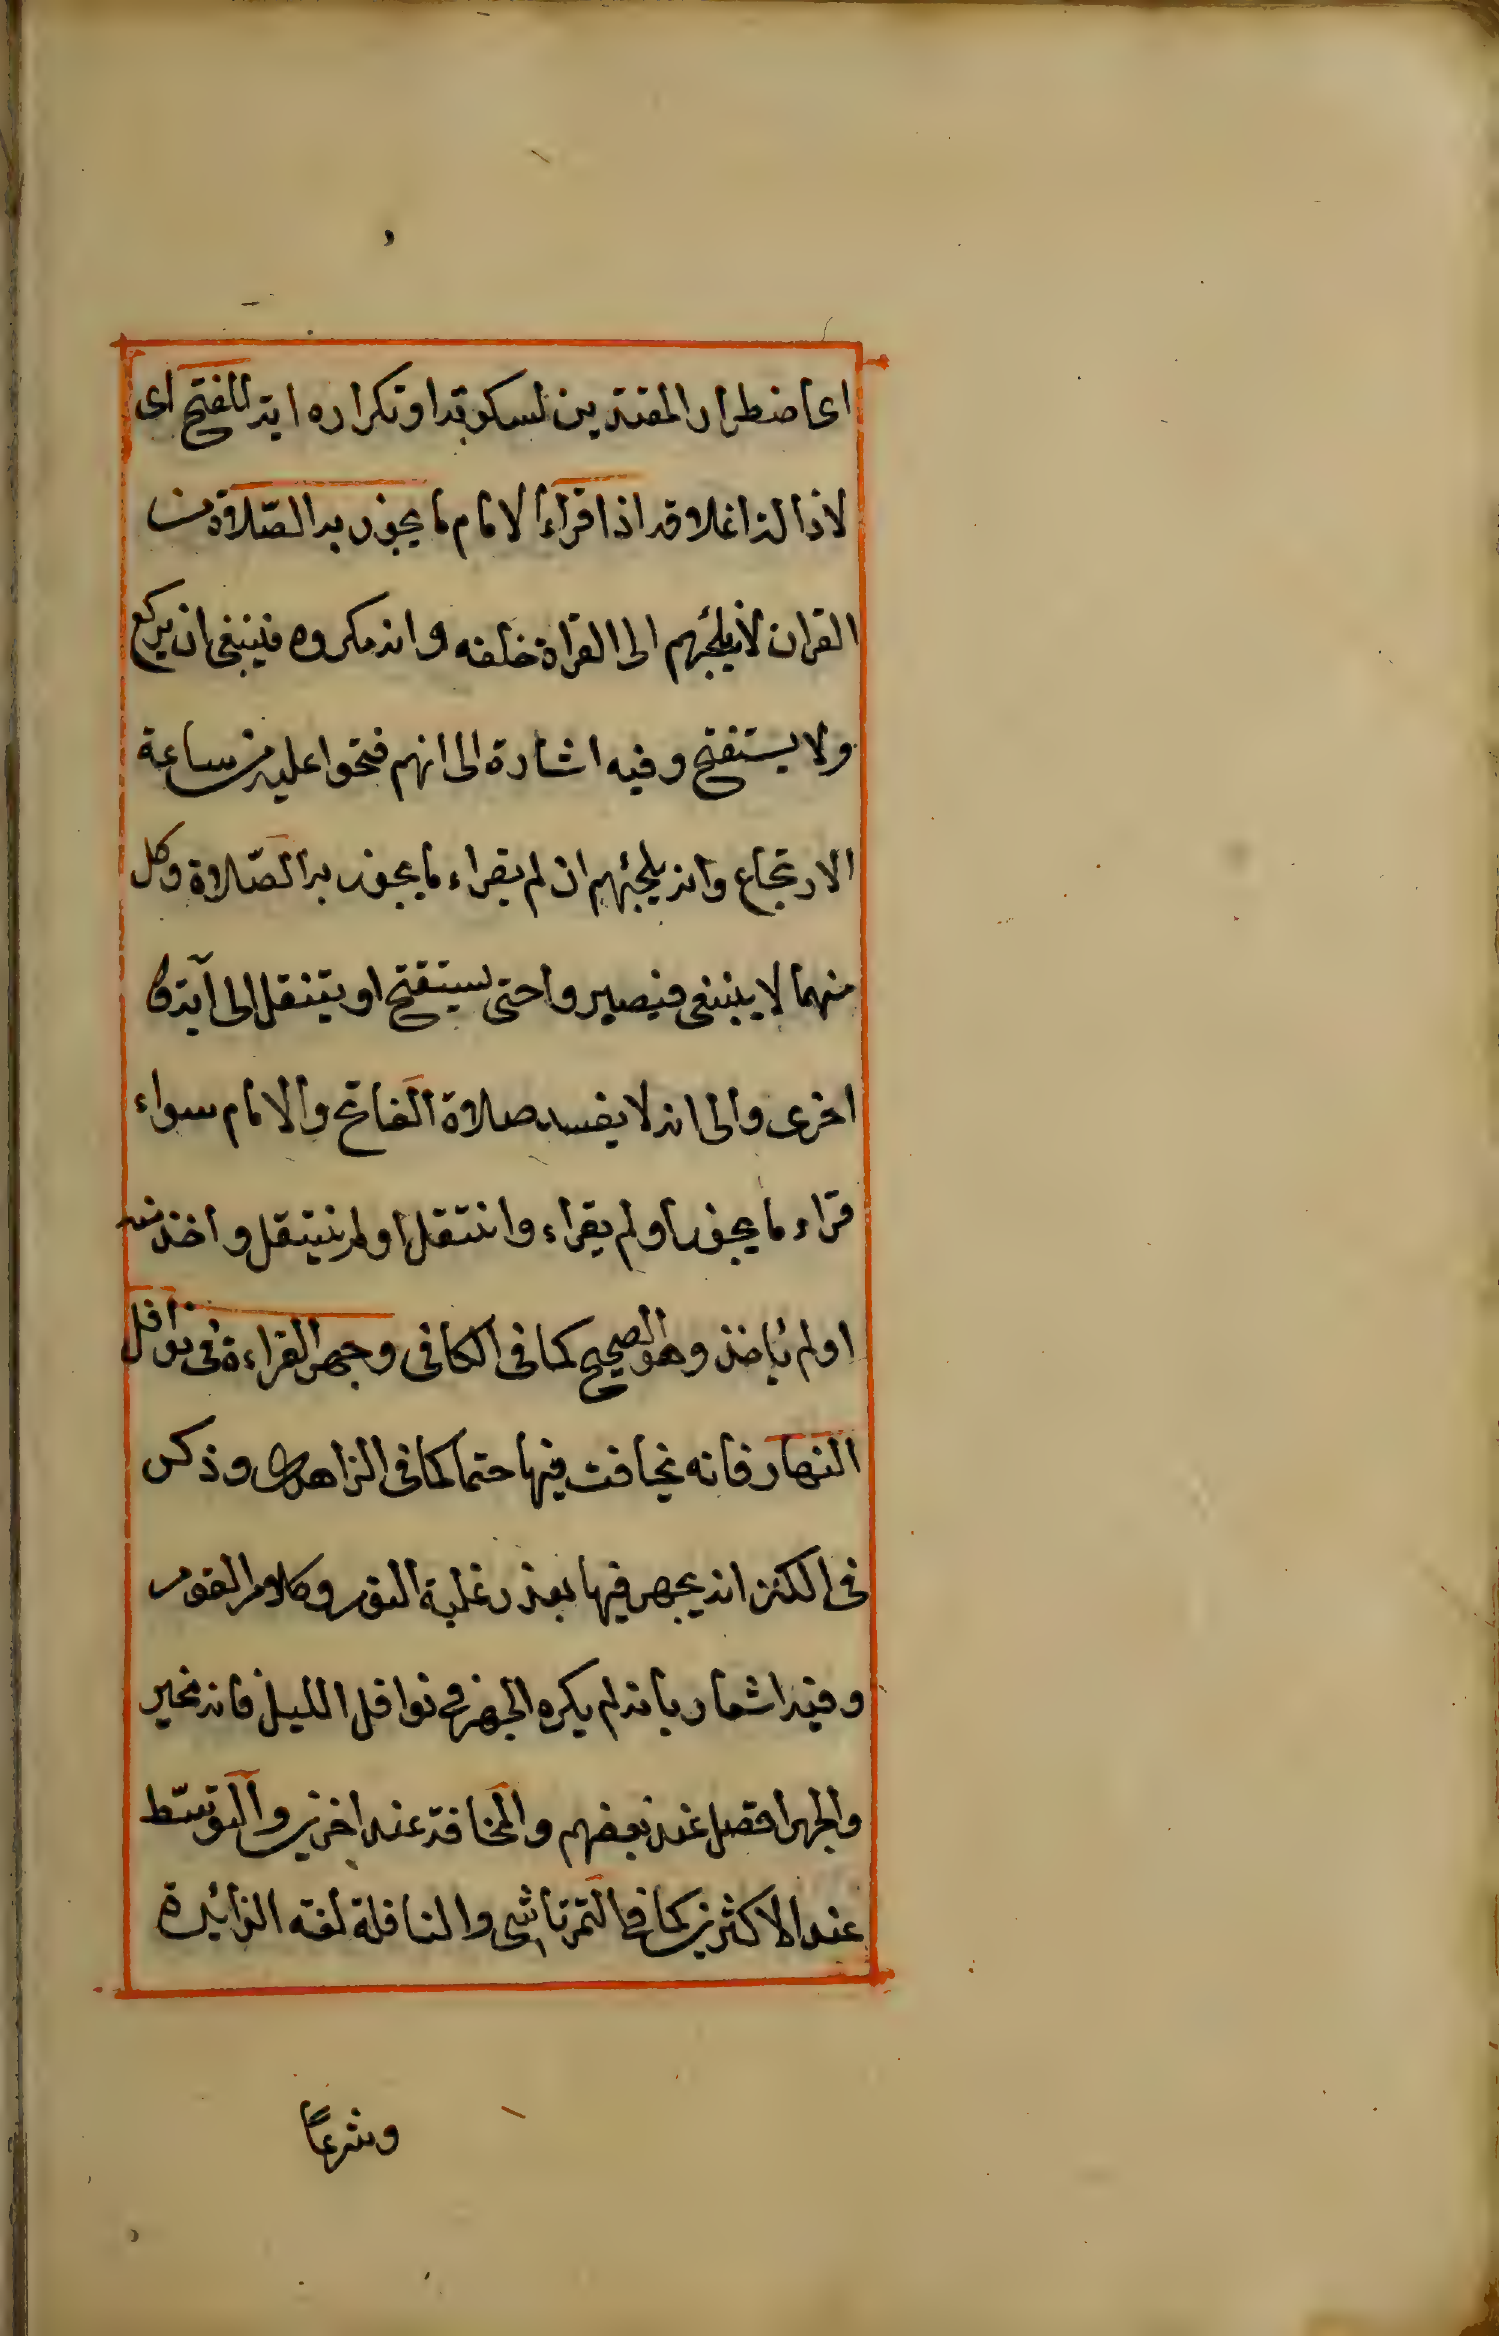 اى اضطرار المقتدين لسكوته او تكراره اية للفتح اى
لازالة اغلاقه اذا قراء الامام ما يجوز به الصّلاة من
القران لانه يلجئهم الى القراة خلفه وانه مكروه فينبغى ان يركع
ولا يستفتح وفيه اشارة الى انهم فتحوا عليه من ساعة
الارتجاع وانه يلجئهم ان لم يقراء ما يجوز به الصّلاة وكل
منهما لا ينبغى فيصيروا حتى يستفتح او يتنقل الى آية
اخرى والى انه لا يفسد صلاة الفاتح والامام سواء
قراء ما يجوز او لم يقراء وانتقل او لم ينتقل واخذ منه
او لم يأخذ وهو الصحيح كما فى الكافى وجهر القراءة فى نوافل
النهار فانه يخافت فيها حتما كما فى الزاهدى وذكر
فى الكنز انه يجهر فيها بعذر غلبة النوم وكلام القوم
وفيه اشعار بانه لم يكره الجهر فى نوافل الليل فانه مخير
والجهر افضل عند بعضهم والمخافتة عند اخرين والتوسّط
عند الاكثرين كما فى التمرتاشى والنافلة لغة الزائدة
وشرعًا